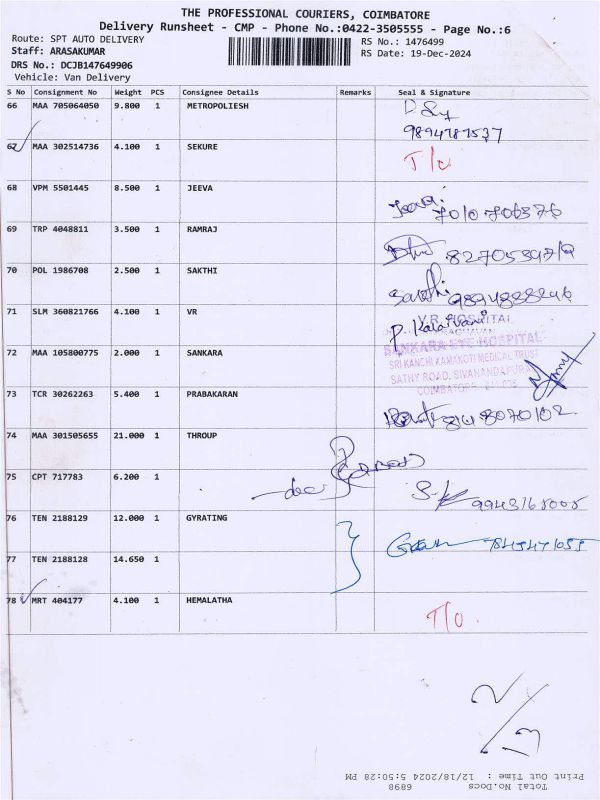 THE PROFESSIONAL COURIERS, COIMBATORE
Delivery Runsheet - CMP - Phone No.:0422-3505555 - Page No.:6
Route: SPT AUTO DELIVERY
RS No.: 1476499
Staff: ARASAKUMAR
RS Date: 19-Dec-2024
DRS No.: DCJB147649906
Vehicle: Van Delivery
S No Consignment No Weight PCS Consignee Details Remarks Seal & Signature
66 MAA 705064050 9.800 1 METROPOLIESH
67 MAA 302514736 4.100 1 SEKURE
68 VPM 5501445 8.500 1 JEEVA
69 TRP 4048811 3.500 1 RAMRAJ
70 POL 1986708 2.500 1 SAKTHI Sakthi
71 SLM 360821766 4.100 1 VR P. Kalaivani
V.R. HOSPITAL
72 MAA 105800775 2.000 1 SANKARA
SANKARA EYE HOSPITAL
SRI KANCHI KAMAKOTI MEDICAL TRUST
SATHY ROAD, SIVANANDAPURAM
73 TCR 30262263 5.400 1 PRABAKARAN
74 MAA 301505655 21.000 1 THROUP
75 CPT 717783 6.200 1
76 TEN 2188129 12.000 1 GYRATING
77 TEN 2188128 14.650 1
78 MRT 404177 4.100 1 HEMALATHA
Total No.Docs 6898
Print Out Time : 12/18/2024 5:50:28 PM